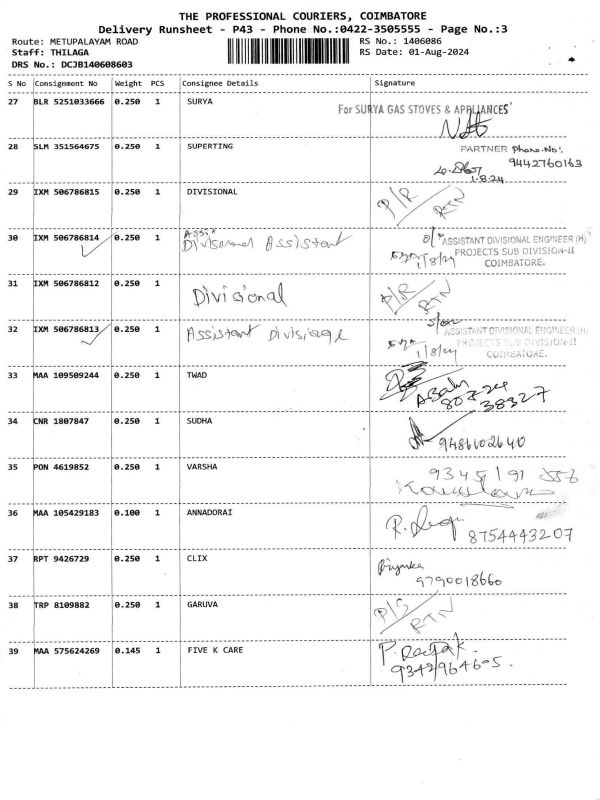 THE PROFESSIONAL COURIERS, COIMBATORE
Delivery Runsheet - P43 - Phone No.:0422-3505555 - Page No.:3
Route: METUPALAYAM ROAD RS No.: 1406086
Staff: THILAGA RS Date: 01-Aug-2024
DRS No.: DCJB140608603
S No Consignment No Weight PCS Consignee Details Signature
27 BLR 5251033666 0.250 1 SURYA
For SURYA GAS STOVES & APPLIANCES
28 SLM 351564675 0.250 1 SUPERTING PARTNER Phone.No:
9442760163
1.8.24
29 IXM 506786815 0.250 1 DIVISIONAL P/R
RTN
30 IXM 506786814 0.250 1 Divisional Assistant
ASSISTANT DIVISIONAL ENGINEER (H)
PROJECTS SUB DIVISION-II
1/8/24 COIMBATORE.
31 IXM 506786812 0.250 1 Divisional P/R
RTN
32 IXM 506786813 0.250 1 Assistant
ASSISTANT DIVISIONAL ENGINEER (H)
PROJECTS SUB DIVISION-II
1/8/24 COIMBATORE.
33 MAA 109509244 0.250 1 TWAD
38327
34 CNR 1807847 0.250 1 SUDHA
9486602640
35 PON 4619852 0.250 1 VARSHA
36 MAA 105429183 0.100 1 ANNADORAI
8754443207
37 RPT 9426729 0.250 1 CLIX Priyanka
9790018660
38 TRP 8109882 0.250 1 GARUVA P/S
RTN
39 MAA 575624269 0.145 1 FIVE K CARE P. Deepak.
9342964605.